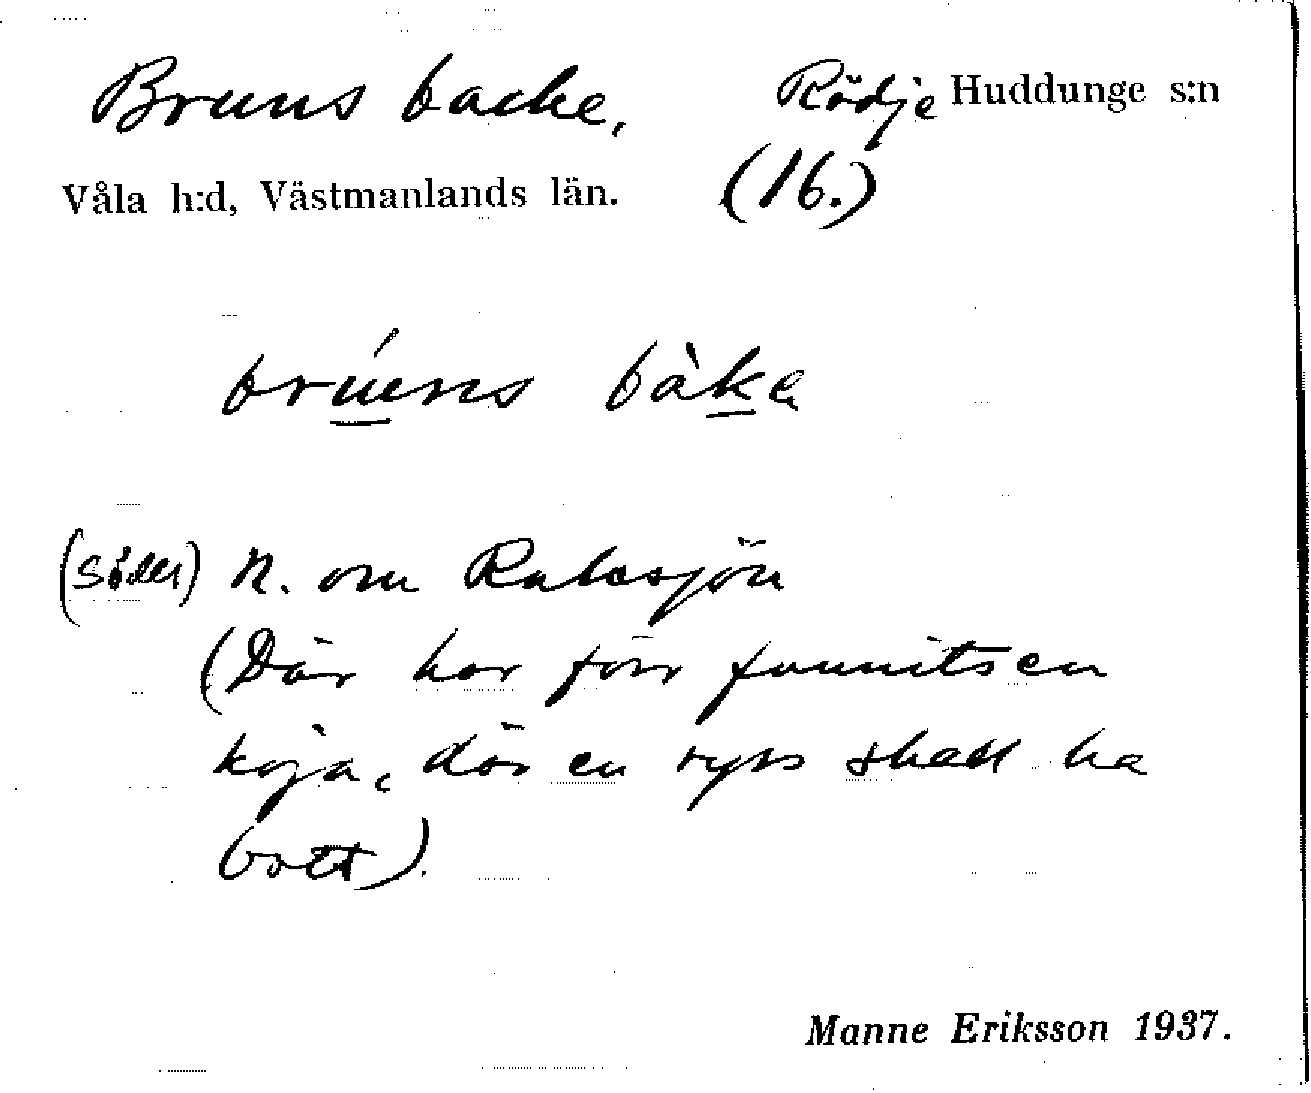 Bruns backe, Rödje Huddunge s:n
Våla h:d, Västmanlands län. (16.)
brúens bàka
(Söder) N. om Ralasjön
(Där har förr funnits en
koja, där en ryss skall ha
bott).
Manne Eriksson 1937.